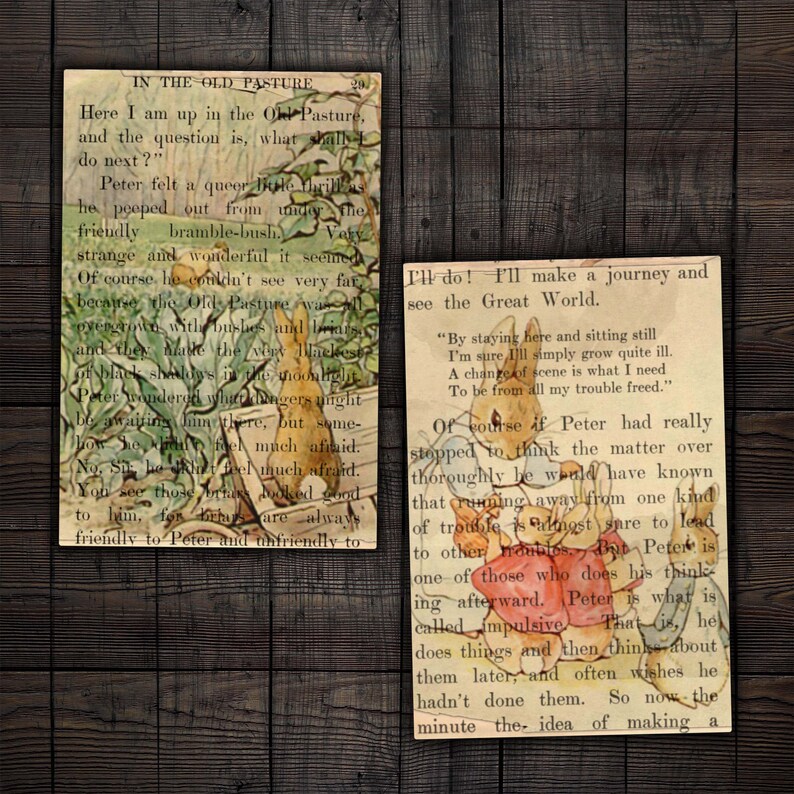 IN THE OLD PASTURE 29
Here I am up in the Old Pasture,
and the question is, what shall I
do next?”
Peter felt a queer little thrill as
he peeped out from under the
friendly bramble-bush. Very
strange and wonderful it seemed.
Of course he couldn't see very far,
because the Old Pasture was all
overgrown with bushes and briars,
and they made the very blackest
of black shadows in the moonlight.
Peter wondered what dangers might
be awaiting him there, but some-
how he didn't feel much afraid.
No, Sir, he didn't feel much afraid.
You see those briars looked good
to him, for briars are always
friendly to Peter and unfriendly to
I'll do! I'll make a journey and
see the Great World.
“By staying here and sitting still
I'm sure I'll simply grow quite ill.
A change of scene is what I need
To be from all my trouble freed.”
Of course if Peter had really
stopped to think the matter over
thoroughly he would have known
that running away from one kind
of trouble is almost sure to lead
to other troubles. But Peter is
one of those who does his think-
ing afterward. Peter is what is
called impulsive. That is, he
does things and then thinks about
them later, and often wishes he
hadn't done them. So now the
minute the idea of making a